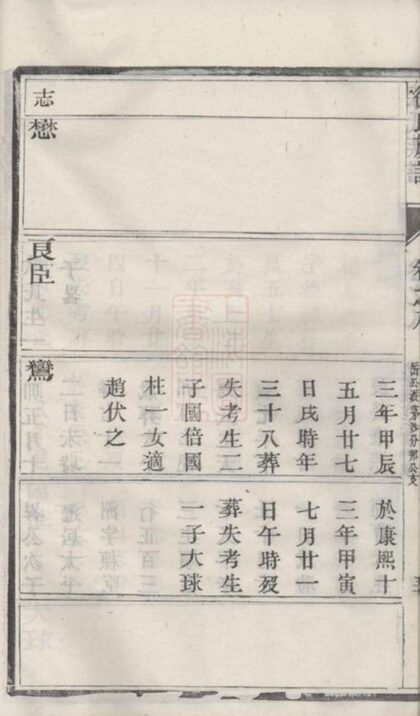 卷之八
志
懋
良臣
三年甲辰
五月廿七
日戌時年
三十八葬
失考生二
子國倍國
柱一女適
趙伏之
鸞
於康熙十
三年甲寅
七月廿一
日午時歿
葬失考生
一子大球